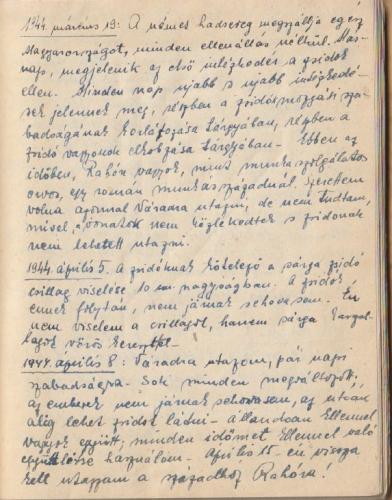 1944. március 19: A német hadsereg megszállja egész
Magyarországot, minden ellenállás nélkül. Más-
nap, megjelenik az első intézkedés a zsidók
ellen. Minden nap ujabb s ujabb intézkedé-
sek jelennek meg, részben a zsidók mozgási sza-
badságának korlátozása tárgyában, részben a
zsidó vagyonok elkobzása tárgyában – Ebben az
időben, Rahón vagyok, mint munkaszolgálatos
orvos, egy román munkásszázadnál. Szerettem
volna azonnal Váradra utazni, de nem tudtam,
mivel a vonatok nem közlekedtek s zsidónak
nem lehetett utazni.
1944. április 5. A zsidóknak kötelező a sárga zsidó
csillag viselése 10 cm nagyságban. A zsidók
ennek folytán, nem járnak sehova sem. Én
nem viselem a csillagot, hanem sárga karsza-
lagot vörös kereszttel
1944. április 8: Váradra utazom, pár napi
szabadságra. Sok minden megváltozott,
az emberek nem járnak sehova sem, az utcán
alig lehet zsidót látni – állandóan Ellennel
vagyok együtt; minden időmet Ellennel való
együttlétre használom. Április 15.-én vissza
kell utaznom a századhoz Rahóra!